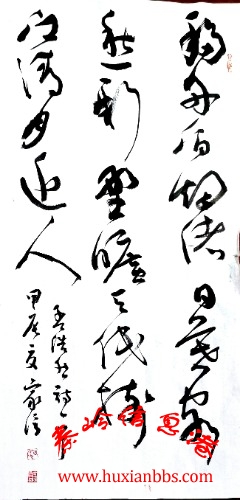 移舟泊烟渚日暮客
愁新野旷天低树
江清月近人
孟浩然诗一首
甲辰夏家信
秦岭情思
www.huxianbbs.com